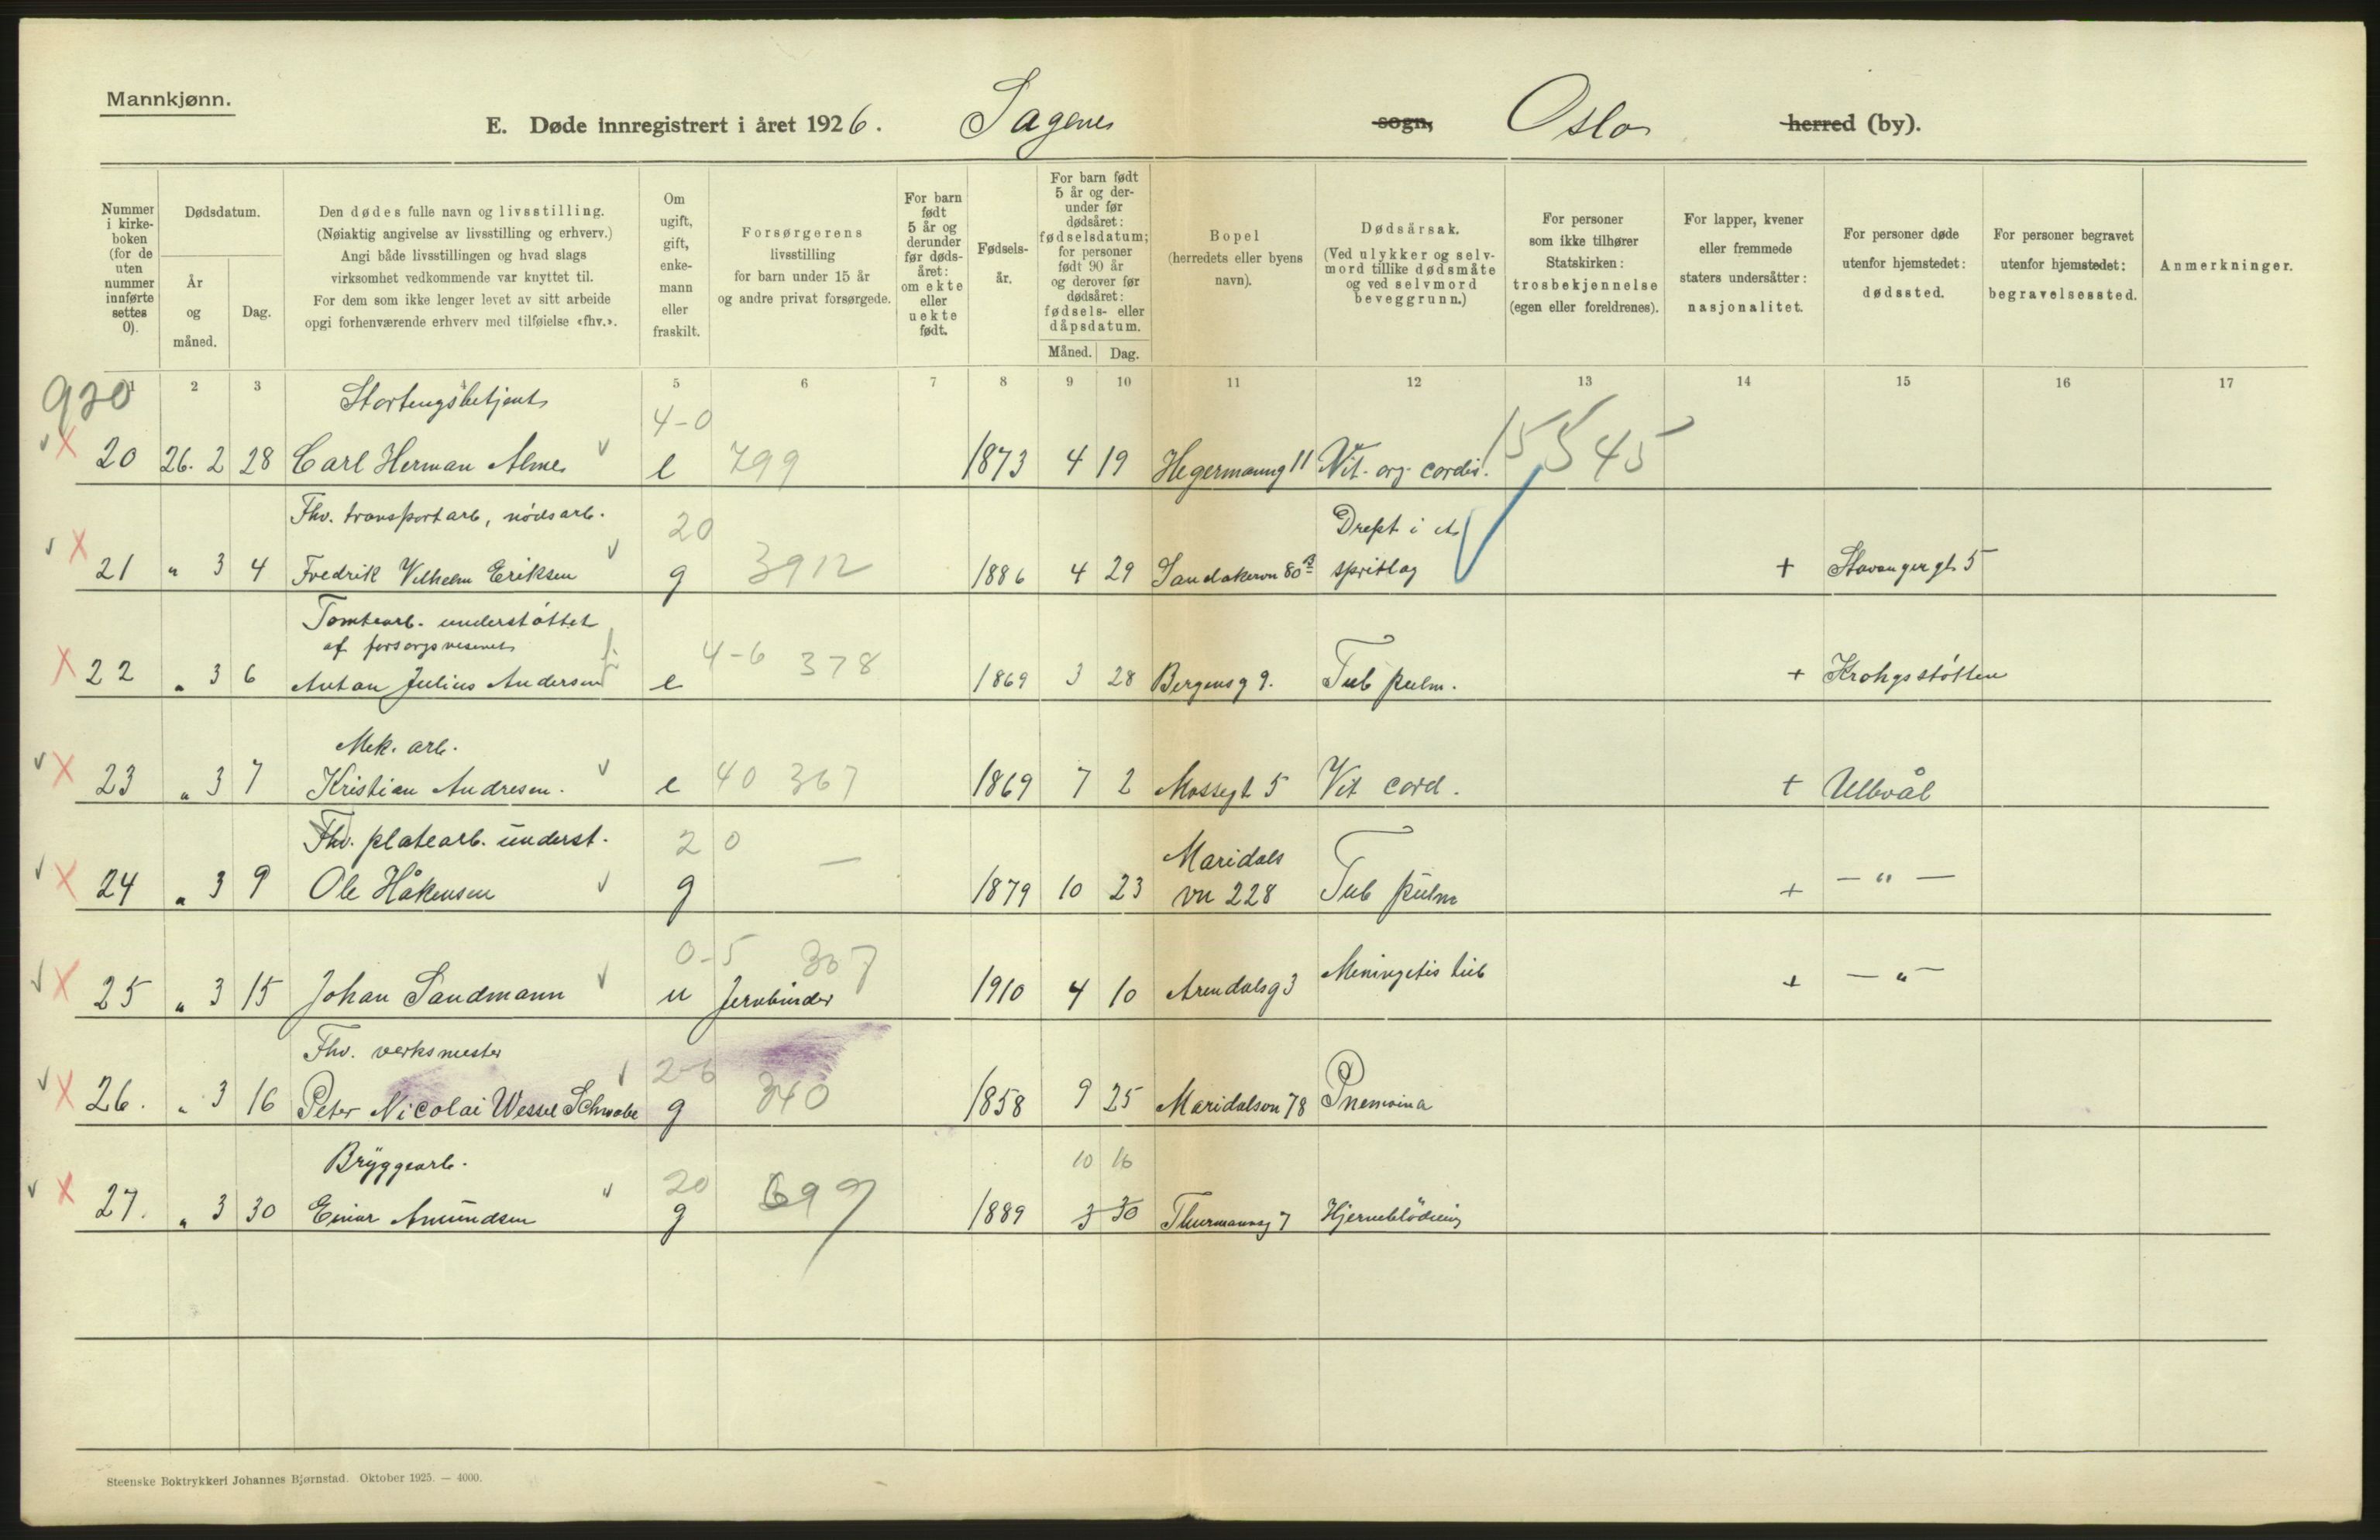 Mannkjønn.
E. Døde innregistrert i året 1926. Sagene sogn, Oslo herred (by).
Nummer i kirkeboken (for de uten nummer innførte settes 0).
Dødsdatum.
År og måned.
Dag.
Den dødes fulle navn og livsstilling.
(Nøiaktig angivelse av livsstilling og erhverv.)
Angi både livsstillingen og hvad slags
virksomhet vedkommende var knyttet til.
For dem som ikke lenger levet av sitt arbeide
opgi forhenværende erhverv med tilføielse «fhv.».
Om ugift, gift, enkemann eller fraskilt.
Forsørgerens
livsstilling
for barn under 15 år
og andre privat forsørgede.
For barn født 5 år og derunder før dødsåret: om ekte eller uekte født.
Fødselsår.
For barn født 5 år og derunder før dødsåret: fødselsdatum; for personer født 90 år og derover før dødsåret: fødsels- eller dåpsdatum.
Måned. Dag.
Bopel
(herredets eller byens
navn).
Dødsårsak.
(Ved ulykker og selvmord tillike dødsmåte og ved selvmord beveggrunn.)
For personer
som ikke tilhører
Statskirken:
trosbekjennelse
(egen eller foreldrenes).
For lapper, kvener
eller fremmede
staters undersåtter:
nasjonalitet.
For personer døde
utenfor hjemstedet:
dødssted.
For personer begravet
utenfor hjemstedet:
begravelsessted.
Anmerkninger.
1 2 3 4 5 6 7 8 9 10 11 12 13 14 15 16 17
920
Stortingsbetjent 4-0 15545
20 26. 2 28 Carl Herman Almes e 799 1873 4 19 Hegermanng 11 Vit. org. cordis.
Fhv. transportarb, nødsarb. 20 Drept i et
21 " 3 4 Fredrik Vilhelm Eriksen g 3912 1886 4 29 Sandakervn 80 B spritlag + Stavangergt. 5
Tomtearb. understøttet
af forsorgsvesenet 4-6 378
22 " 3 6 Anton Julius Andersen e 1869 3 28 Bergensg 9. Tub pulm. + Krohgsstøtten
Mek. arb.
23 " 3 7 Kristian Andresen. e 40 367 1869 7 2 Mossegt 5 Vit cord. + Ullevål
Fhv. platearb. underst. 20 — Maridals
24 " 3 9 Ole Håkensen g 1879 10 23 vn 228 Tub pulm + — " —
0-5 307
25 " 3 15 Johan Sandmann u Jernbinder 1910 4 10 Arendalsg 3 Meningetis tub + — " —
Fhv. verksmester 2-6
26. " 3 16 Peter Nicolai Wessel Schwabe g 340 1858 9 25 Maridalsvn 78 Pnemoina
Bryggearb. 20 10 16
27. " 3 30 Einar Amundsen g 699 1889 3 30 Thurmannsg 7 Hjerneblødning
Steenske Boktrykkeri Johannes Bjørnstad. Oktober 1925. — 4000.